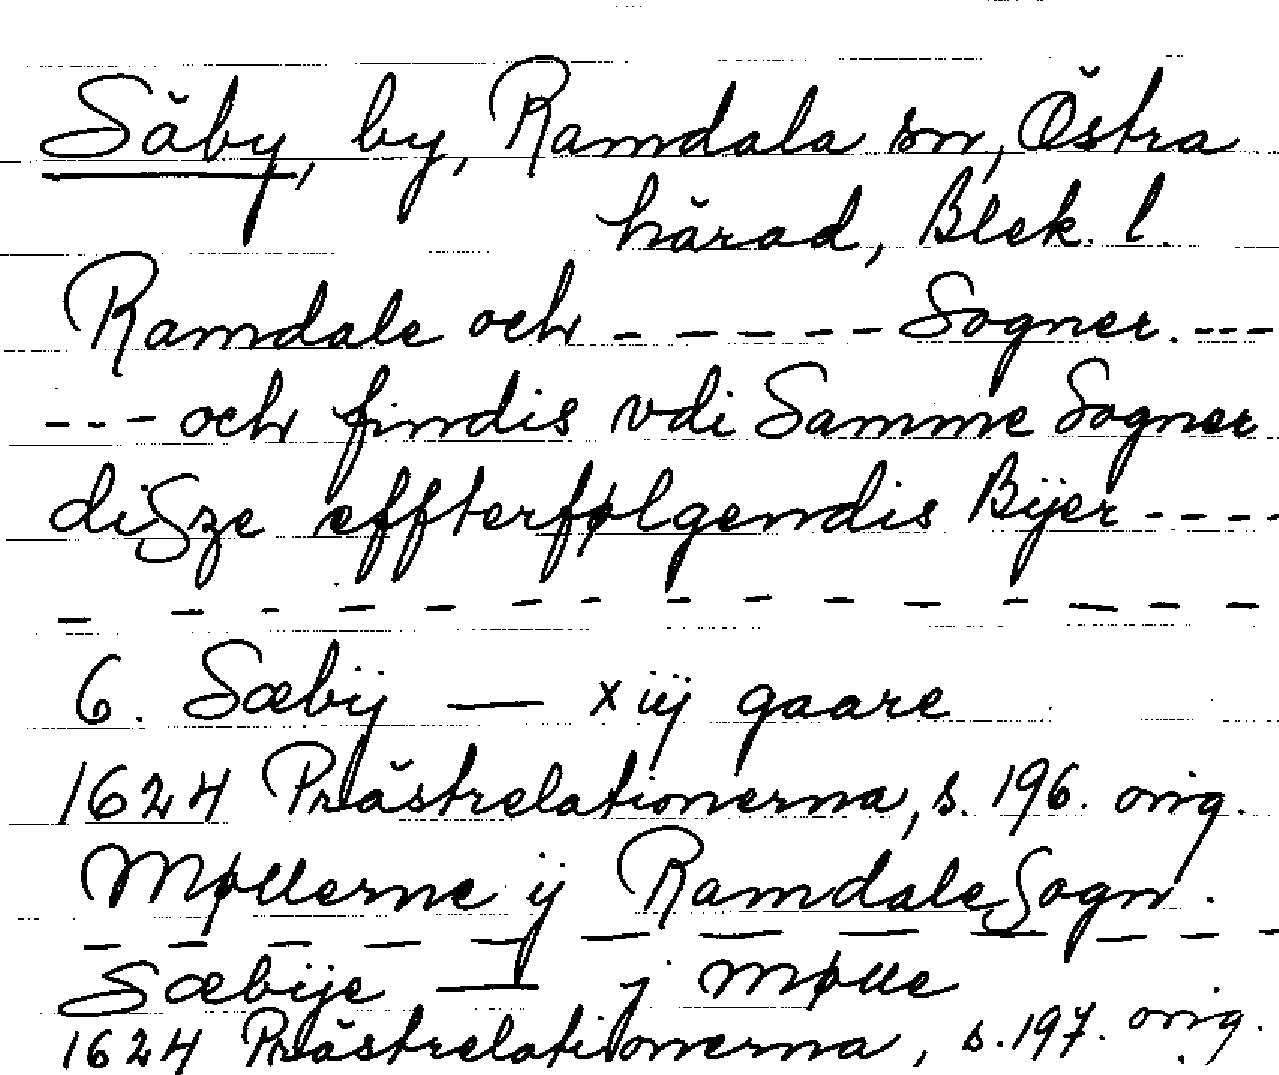 Säby, by, Ramdala sn, Östra
härad, Blek. l.
Ramdale och - - - - - - Sogner. - - -
- - - och findis vdi Samme Sogner
diSze effterfølgendis Bÿer - - - -
- - - - - - - - - - - - - - -
6. Sæbÿ — xiij gaare
1624 Prästrelationerna, s. 196. orig.
Møllerne ij Ramdale Sogn.
- - - - - - - - - - - - -
Sæbÿe — j Mølle
1624 Prästrelationerna, s. 197. orig.